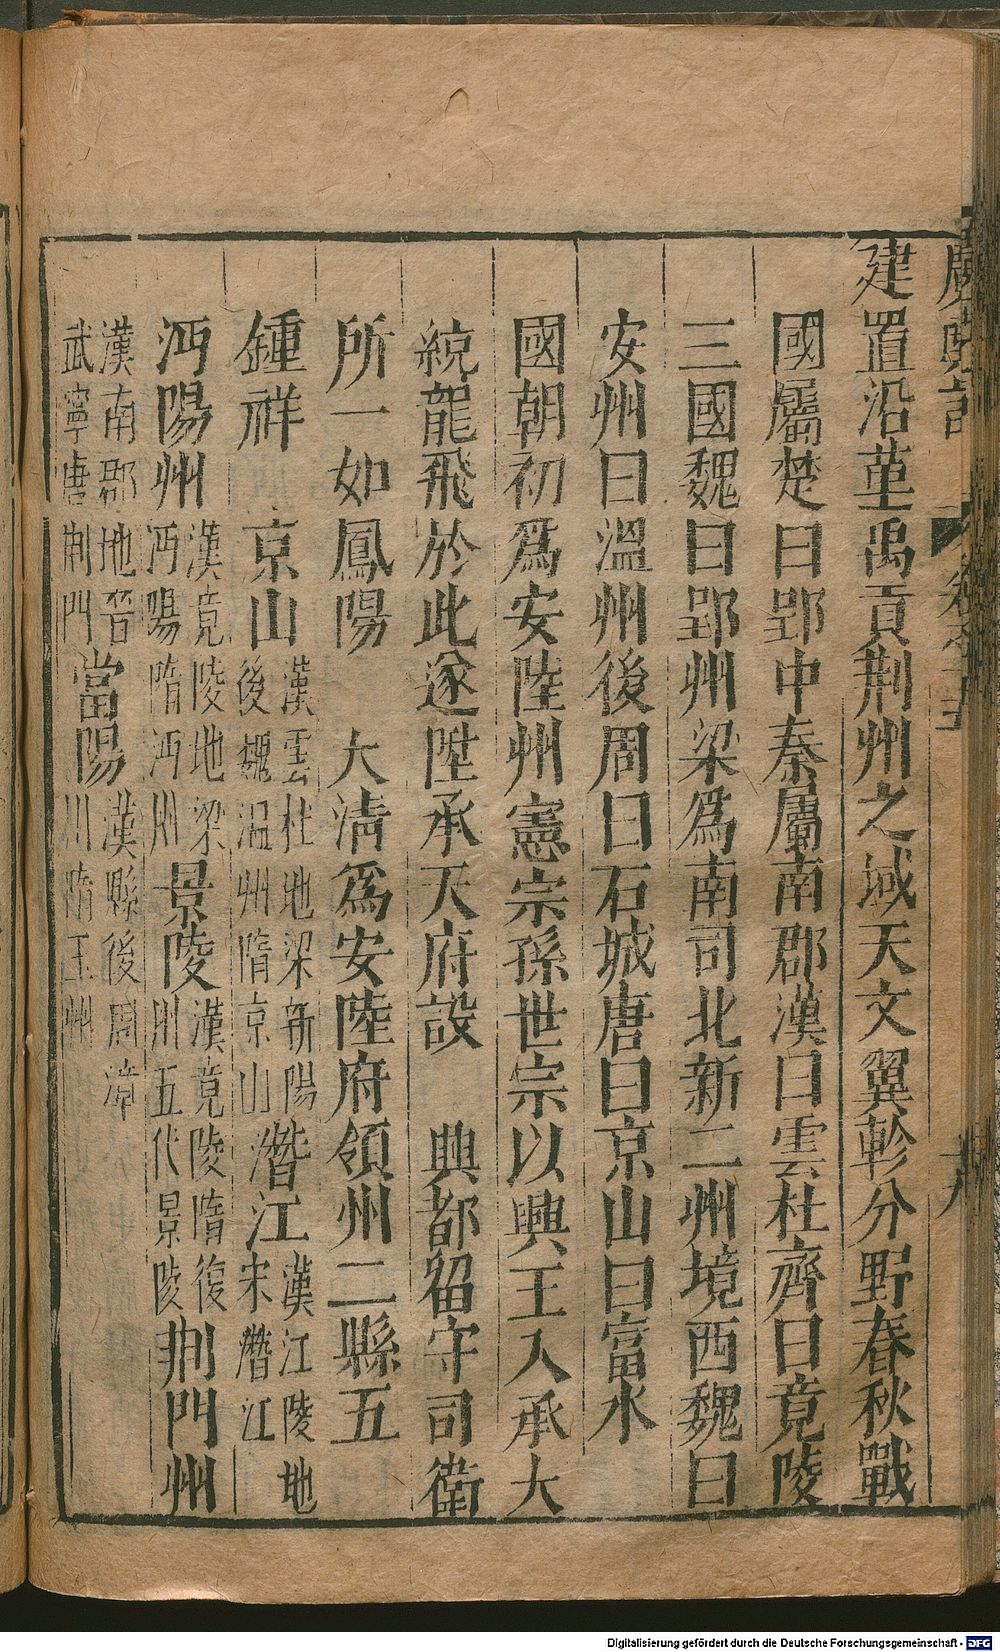 建置沿革禹貢荆州之域天文翼軫分野春秋戰
國屬楚曰郢中秦屬南郡漢曰雲杜齊曰竟陵
三國魏曰郢州梁爲南司北新二州境西魏曰
安州曰溫州後周曰石城唐曰京山曰富水
國朝初爲安陸州憲宗孫世宗以興王入承大
統龍飛於此遂陞承天府設 興都留守司衛
所一如鳳陽 大清爲安陸府領州二縣五
鍾祥 京山 漢雲杜地梁新陽後魏温州隋京山 潛江 漢江陵地宋潛江
沔陽州 漢竟陵地梁沔陽隋沔州 景陵 漢竟陵隋復州五代景陵 荆門州
漢南郡地晉武寧唐荆門 當陽 漢縣後周漳川隋玉州
Digitalisierung gefördert durch die Deutsche Forschungsgemeinschaft - DFG